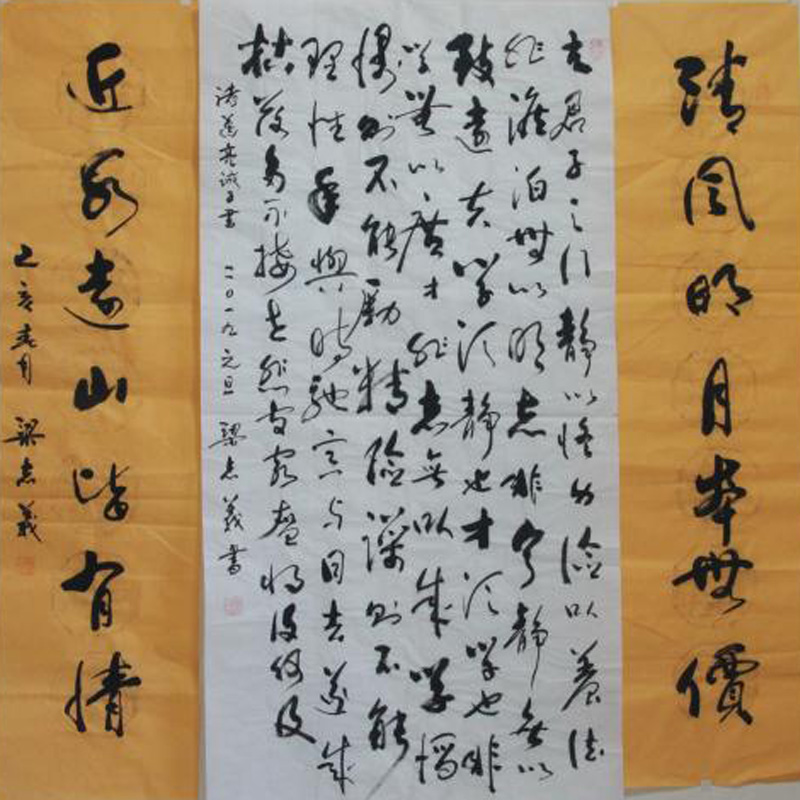 清風明月本無價
夫君子之行靜以修身儉以養德
非澹泊無以明志非寧靜無以
致遠夫學須靜也才須學也非
學無以廣才非志無以成學慆
慢則不能勵精險躁則不能
理性年與時馳意與日去遂成
枯落多不接世悲守窮廬將復何及
諸葛亮誡子書 二〇一九元旦 梁志義書
近水遠山皆有情
己亥春月 梁志義